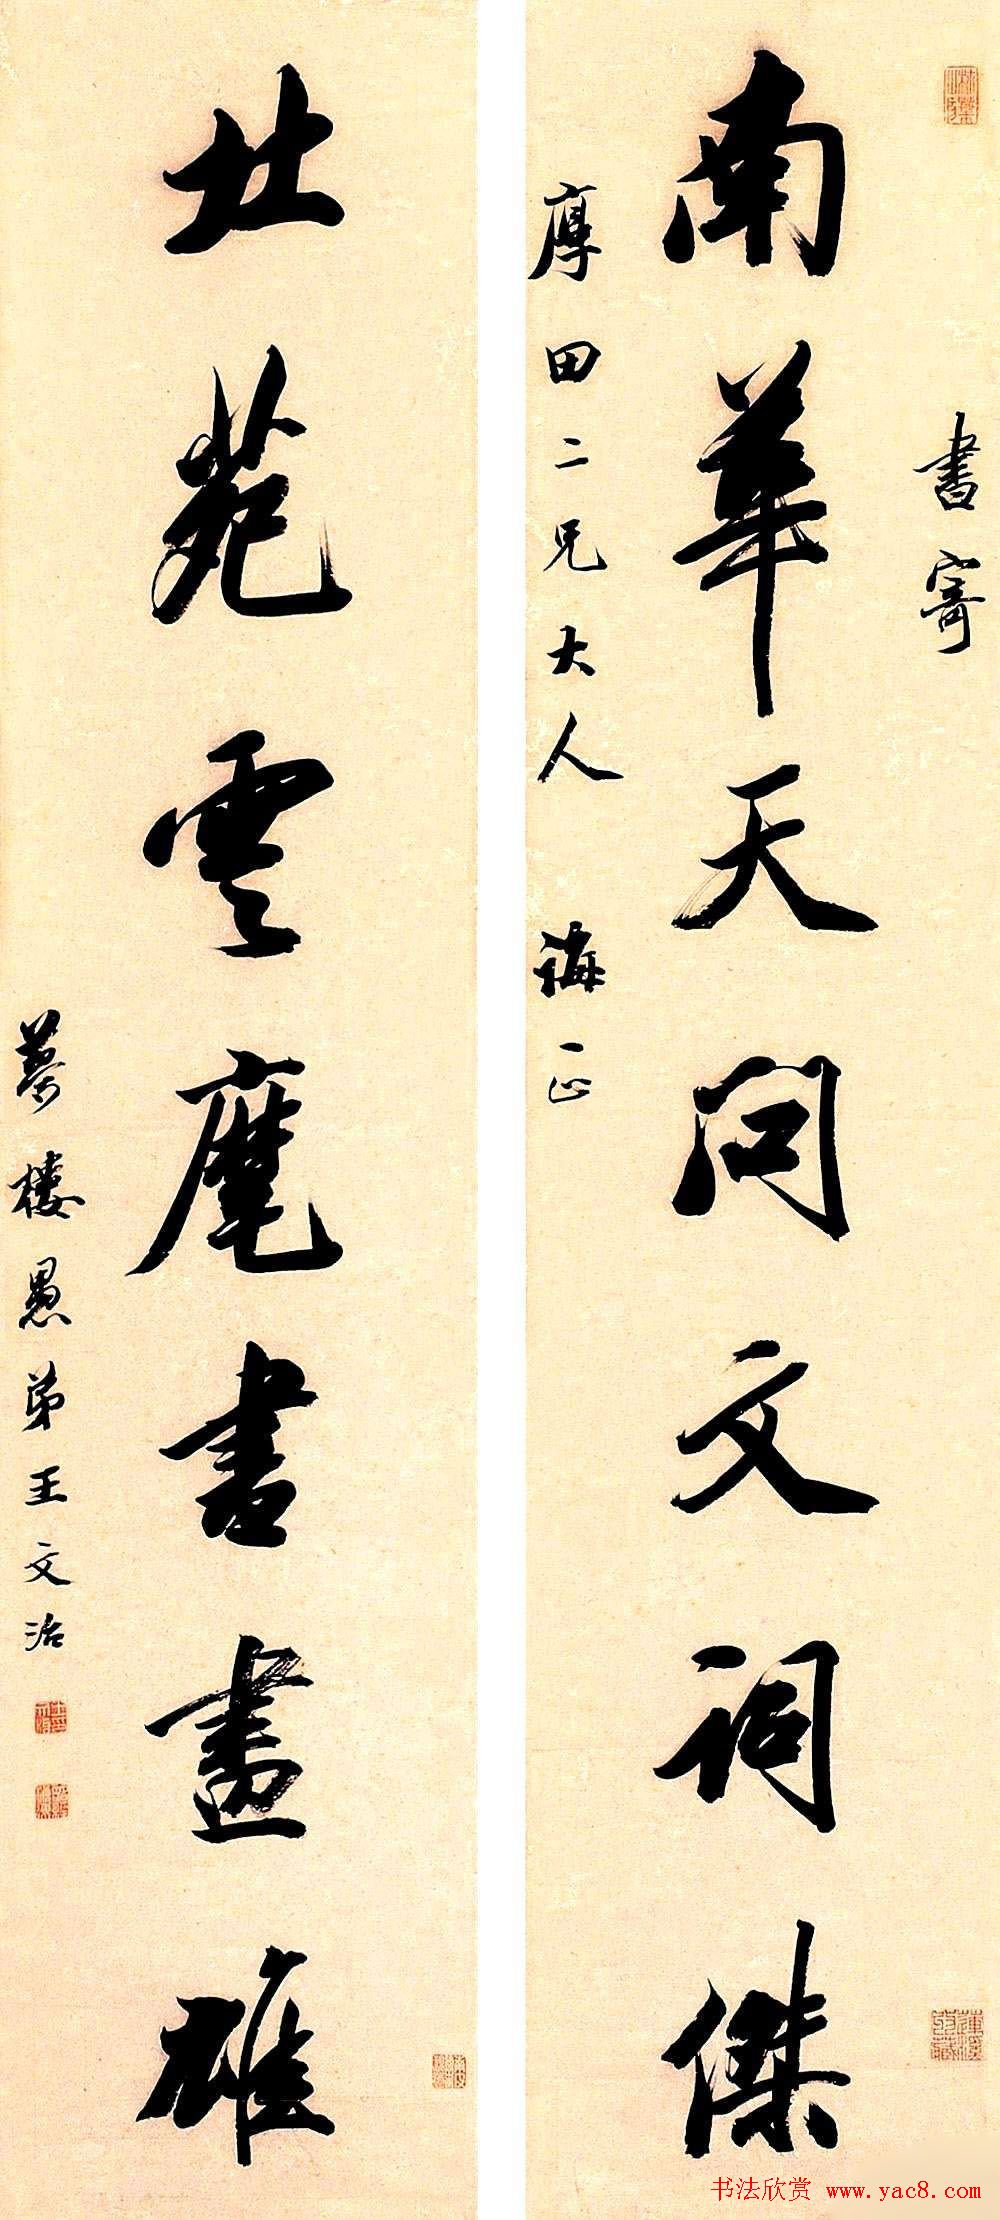 書寄
南華天問文詞傑
厚田二兄大人 誨正
北苑雲麾書畫雄
夢樓愚弟王文治
书法欣赏 www.yac8.com